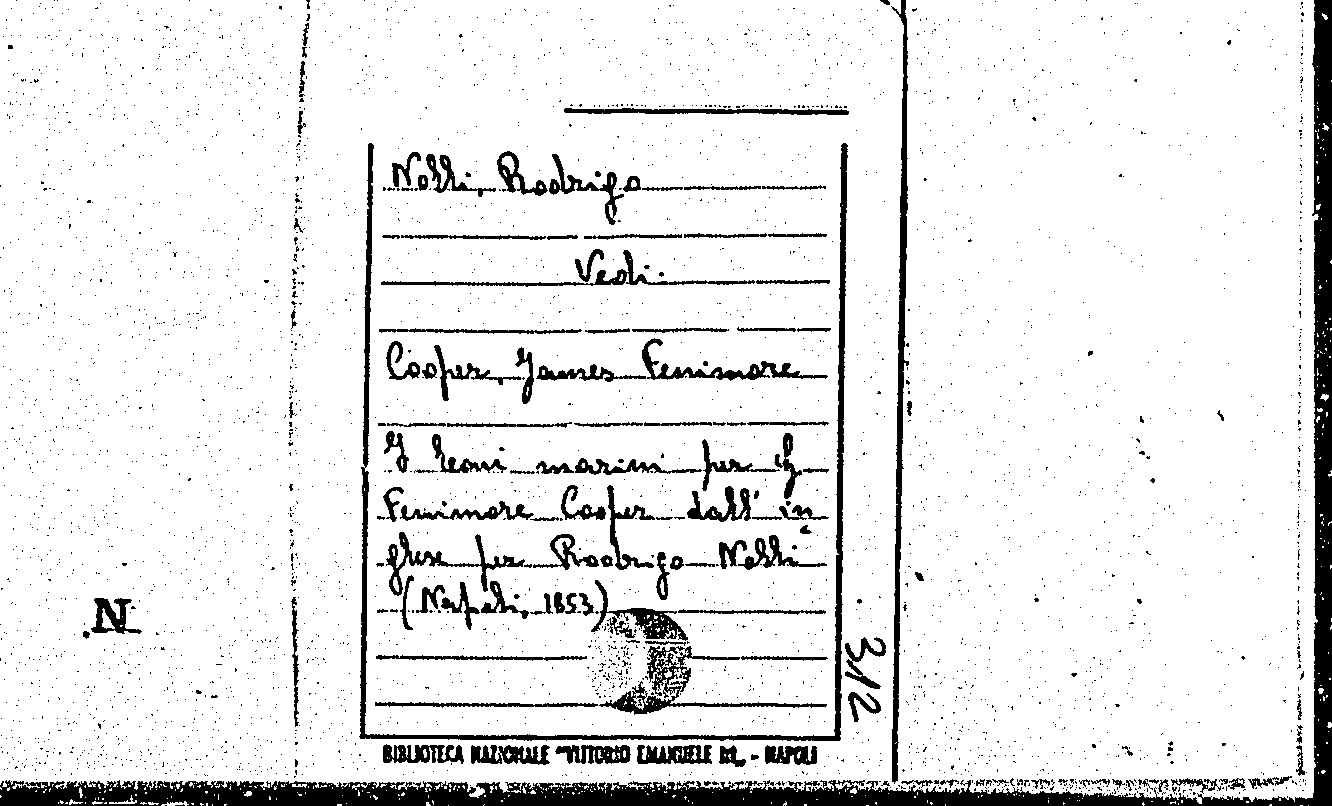 Nolli, Rodrigo
Vedi:
Cooper, James Fenimore
I leoni marini per
Fenimore Cooper dall' in
glese per Rodrigo Nolli
(Napoli, 1853)
N
312
BIBLIOTECA NAZIONALE "VITTORIO EMANUELE III„ - NAPOLI